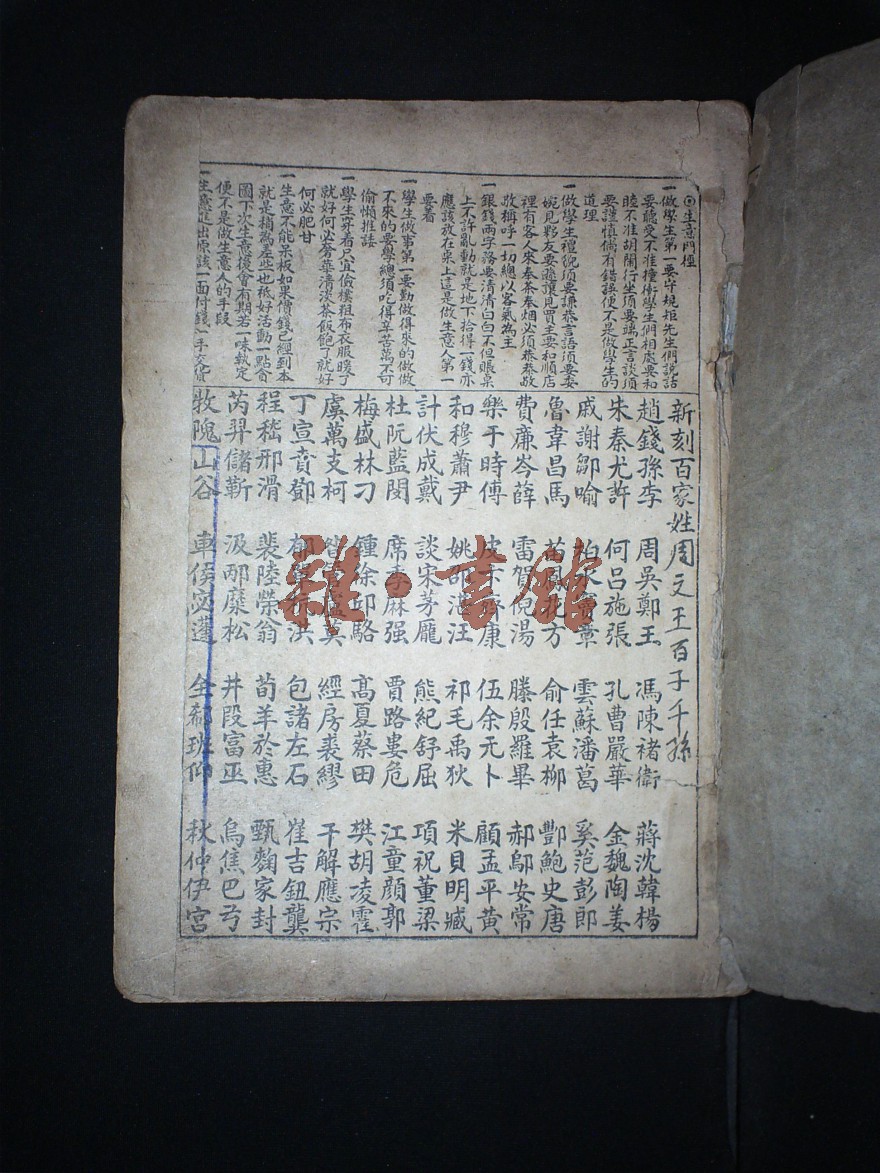 ◎生意門徑
一做學生第一要守規矩先生們說話
要聽受不准撞倖學生們相處要和
睦不准胡鬧行坐須要端正言談須
要謹慎倘有錯誤便不是做學生的
道理
一做學生禮貌須要謙恭言語須要委
婉見夥友要謙讓見買主要和順店
裡有客人來奉茶奉烟必須恭恭敬
敬稱呼一切總以客氣為主
一銀錢兩字務要清清白白不但賬桌
上不許亂動就是地下拾得一錢亦
應該放在桌上這是做生意人第一
要着
一學生做事第一要勤做得來的做做
不來的要學總須吃得辛苦萬不可
偷懶推諉
一學生穿着只宜儉樸粗布衣服暖了
就好何必奢華清淡茶飯飽了就好
何必肥甘
一生意不能呆板如果價錢已經到本
就是稍為差些也祗好活動一點會
圖下次生意後會有期若一味執定
便不是做生意人的手段
一生意進出原該一面付錢一手交貨
新刻百家姓周文王百子千孫
趙錢孫李 周吳鄭王 馮陳褚衛 蔣沈韓楊
朱秦尤許 何呂施張 孔曹嚴華 金魏陶姜
戚謝鄒喻 柏水竇章 雲蘇潘葛 奚范彭郎
魯韋昌馬 苗鳳花方 俞任袁柳 酆鮑史唐
費廉岑薛 雷賀倪湯 滕殷羅畢 郝鄔安常
樂于時傅 皮卞齊康 伍余元卜 顧孟平黃
和穆蕭尹 姚邵湛汪 祁毛禹狄 米貝明臧
計伏成戴 談宋茅龐 熊紀舒屈 項祝董梁
杜阮藍閔 席季麻强 賈路婁危 江童顏郭
梅盛林刁 鍾徐邱駱 高夏蔡田 樊胡凌霍
虞萬支柯 昝管盧莫 經房裘繆 干解應宗
丁宣賁鄧 郁單杭洪 包諸左石 崔吉鈕龔
程嵇邢滑 裴陸榮翁 荀羊於惠 甄麴家封
芮羿儲靳 汲邴糜松 井段富巫 烏焦巴弓
牧隗山谷 車侯宓蓬 全郗班仰 秋仲伊宮
雅·書館